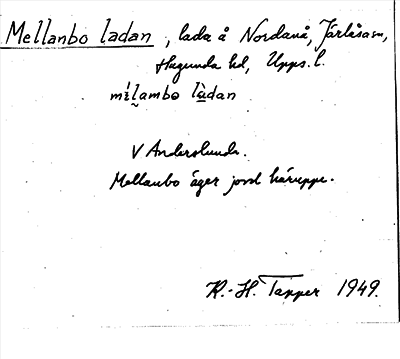 Mellanbo ladan, lada å Nordanå, Järlåsa sn,
Hagunda hd, Upps. l.
mìlambo làdan
V Anderslunda.
Mellanbo äger jord häruppe.
K.-H. Tapper 1949.